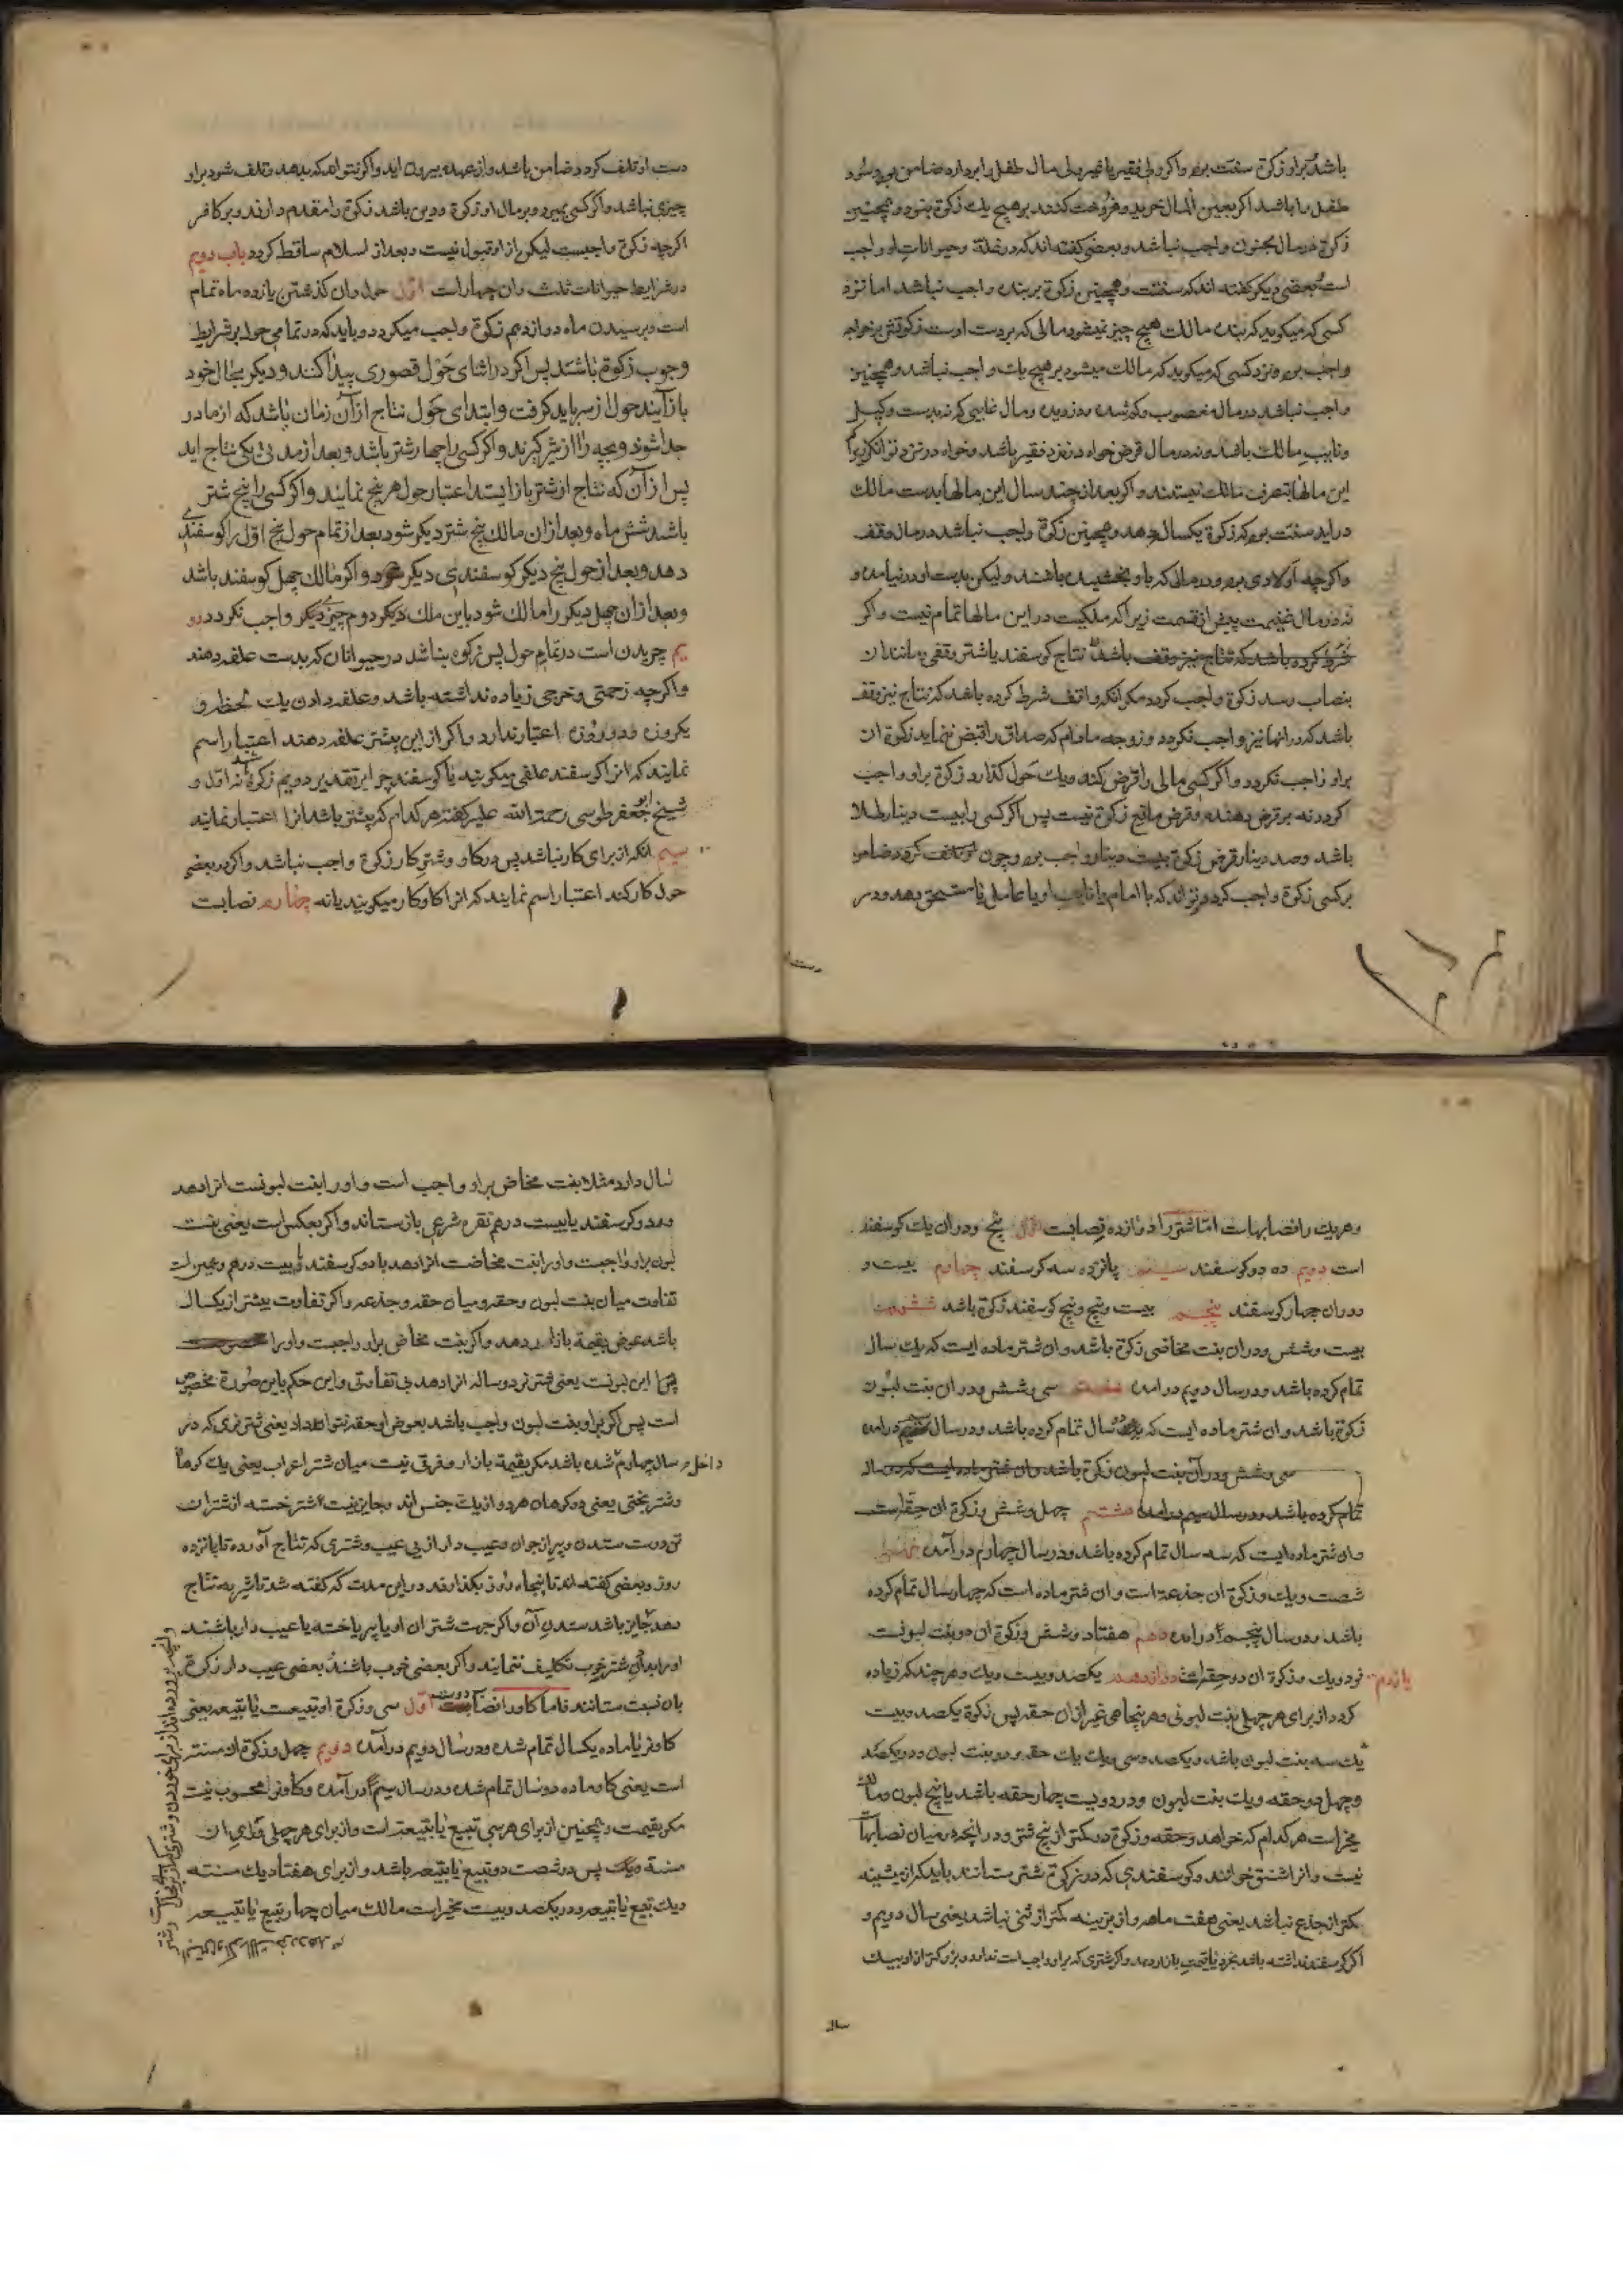 باشد براو زكوة سنت بود واكر ولی فقیر یا غیر ولی مال طفل را بردارد ضامن بود وسود
طفل را باشد اكر بعین المال خرید وفروخت كند برهیچ یك زكوة نبود وهمچنین
زكوة درمال مجنون واجب نباشد وبعضی كفته اند كه درغله وحیوانات او واجب
است وبعضی دیكر كفته اند كه سنتست وهمچنین زكوة بر بنده واجب نباشد اما نزد
كسی كه میكوید كه بنده مالك هیچ چیز نمیشود مالی كه بردست اوست زكوتش برخواجه
واجب بود ونزد كسی كه میكوید كه مالك میشود برهیچ یك واجب نباشد وهمچنین
واجب نباشد درمال مغصوب وكم شده ودزدیده ومال غایبی كه نه بدست وكیل
ونایب مالك باشد ونه درمال قرض خواه در نزد فقیر باشد وخواه در نزد توانكر زیرا كه
این مالها بتصرف مالك نیستند واكر بعد از چند سال این مالها بدست مالك
دراید سنت بود كه زكوة یكسال بدهد وهمچنین زكوة واجب نباشد درمال وقف
واكرچه اولادی بود ودرمالی كه باو بخشیده باشند ولیكن بدست او درنیامده و
نه درمال غنیمت پیش از قسمت زیرا كه ملكیت دراین مالها تمام نیست واكر
شرط كرده باشد كه نتاج نیز وقف باشد نتاج كوسفند یا شتر وقفی ومانند ان
بنصاب رسد زكوة واجب كردد مكر انكه واقف شرط كرده باشد كه نتاج نیز وقف
باشد كه درانها نیز واجب نكردد وزوجه مادام كه صداق را قبض ننماید زكوة ان
براو واجب نكردد واكر كسی مالی را قرض كند ویك حول كذارد زكوة براو واجب
كردد نه برقرض دهنده وقرض مانع زكوة نیست پس اكر كسی را بیست دینار طلا
باشد وصد دینار قرض زكوة بیست دینار واجب بود وچون
بركسی زكوة واجب كردد وتواند كه با امام یا نایب او یا عامل یا مستحق بدهد ودر
دست
دست او تلف كردد ضامن باشد واز عهده بیرون اید واكر نتواند كه بدهد وتلف شود براو
چیزی نباشد واكر كسی بمیرد وبرمال او زكوة ودین باشد زكوة را مقدم دارند وبركافر
اكرچه زكوة واجبست لیكن از او قبول نیست وبعد از اسلام ساقط كردد باب دویم
درشرایط حیوانات ثلث وان چهار است اول حول وان كذشتن یازده ماه تمام
است وبرسیدن ماه دوازدهم زكوة واجب میكردد وباید كه درتمامی حول برشرایط
وجوب زكوة باشند پس اكر دراثنای حول قصوری پیدا كنند ودیكر بحال خود
باز آیند حول از سر باید كرفت وابتدای حول نتاج از آن زمان باشد كه از مادر
جدا شوند وبچه را از شیر كیرند واكر كسی را چهار شتر باشد وبعد از مدتی یكی نتاج اید
پس از آن كه نتاج از شتر باز ایستد اعتبار حول هر پنج نمایند واكر كسی را پنج شتر
باشد شش ماه وبعد ازان مالك پنج شتر دیكر شود بعد از تمام حول پنج اول را كوسفندی
دهد وبعد از حول پنج دیكر كوسفندی دیكر واكر مالك چهل كوسفند باشد
وبعد ازان چهل دیكر را مالك شود باین ملك دیكر دوم چیزی دیكر واجب نكردد دو
یم چریدن است درتمام حول پس زكوة نباشد درحیوانان كه بدست علف دهند
واكرچه زحمتی وخرجی زیاده نداشته باشد وعلف دادن یك لحظه و
یكروزه ودوروزه اعتبار ندارد واكر از این بیشتر علف دهند اعتبار اسم
نمایند كه انرا كوسفند علفی میكویند یا كوسفند چرا برتقدیر دویم زكوة باشد نه اول و
شیخ ابو جعفر طوسی رحمة الله علیه كفته هركدام كه بیشتر باشد انرا اعتبار نمایند
سیم انكه از برای كار نباشد پس دركاو وشتر كار زكوة واجب نباشد واكر دربعضی
حول كار كند اعتبار اسم نمایند كه انرا كاو كار میكویند یا نه چهارم نصابست
وهریك را نصابهاست اما شتر را دوازده نصابست اول پنج ودران یك كوسفند
است دویم ده دو كوسفند سیم پانزده سه كوسفند چهارم بیست و
ودران چهار كوسفند پنجم بیست وپنج وپنج كوسفند زكوة باشد ششم
بیست وشش ودران بنت مخاضی زكوة باشد وان شتر ماده ایست كه یك سال
تمام كرده باشد ودرسال دویم درامده هفتم سی وشش ودران بنت لبون
زكوة باشد وان شتر ماده ایست كه دو سال تمام كرده باشد ودرسال سیم درامده
سی وشش ودرآن بنت لبون زكوة باشد وان شتر ماده ایست كه دو سال
تمام كرده باشد ودرسال سیم درامده هشتم چهل وشش وزكوة ان حقه است
وان شتر ماده ایست كه سه سال تمام كرده باشد ودرسال چهارم درآمده نهم
شصت ویك وزكوة ان جذعه است وان شتر ماده است كه چهار سال تمام كرده
باشد ودرسال پنجم درامده دهم هفتاد وشش وزكوة ان دو بنت لبونست
یازدهم نود ویك وزكوة ان دو حقه است دوازدهم یكصد وبیست ویك وهرچند كه زیاده
كردد از برای هرچهلی بنت لبونی وهر پنجاهی غیر ازان حقه پس زكوة یكصد وبیست
یك سه بنت لبون باشد ویكصد وسی را یك حقه ودو بنت لبون ودر یكصد
وچهل دو حقه ویك بنت لبون ودر دویست چهار حقه باشد یا پنج لبون ومالك
مخیر است هركدام كه خواهد وحقه وزكوة در كمتر از پنج شتر ودر انچه درمیان نصابها
نیست وانرا شنق خوانند وكوسفندی كه در زكوة شتر ستانند باید كه از میشینه
كمتر از جذع نباشد یعنی هفت ماهه واز بزینه كمتر از ثنی نباشد یعنی سال دویم و
اكر كوسفند نداشته باشد بخرد یا قیمت بازار دهد واكر شتری كه براو واجب است ندارد وبزركتر از او بیك
سال
سال دارد مثلا بنت مخاض براو واجب است واورا بنت لبونست انرا دهد
ودو كوسفند یا بیست درهم نقره شرعی باز ستاند واكر بعكس است یعنی بنت
لبون براو واجبست واورا بنت مخاضست انرا دهد با دو كوسفند یا بیست درهم وهمین است
تفاوت میان بنت لبون وحقه ومیان حقه وجذعه واكر تفاوت بیشتر از یكسال
باشد عوض بقیمة بازار دهد واكر بنت مخاض براو واجبست واورا
ابن لبونست یعنی شتر نر دوساله انرا دهد بی تفاوتی واین حكم باین صورة مخصوص
است پس اكر براو بنت لبون واجب باشد بعوض او حقه نتواند داد یعنی شتر نری كه در
داخل سال چهارم شده باشد مكر بقیمة بازار وفرق نیست میان شتر اعراب یعنی یك كوهان
وشتر بختی یعنی دو كوهان هردو از یك جنس اند وجایز نیست شتر خسته از شتران
تن درست ستدن وپیر از جوان وعیب دار از بی عیب وشتری كه نتاج آورده تا پانزده
روز وبعضی كفته اند تا پنجاه روز بكذارند دراین مدت كه كفته شد تا شیر به نتاج
دهد جایز نباشد ستدن آن واكر جهت شتران او یا پیر یا خسته یا عیب دار باشند
اورا بدادن شتر خوب تكلیف ننمایند واكر بعضی خوب باشند وبعضی عیب دار زكوة
بان نسبت ستانند فاما كاو را دو نصابست اول سی وزكوة او تبیعست یا تبیعه یعنی
كاو نر یا ماده یكسال تمام شده ودرسال دویم درآمده دویم چهل وزكوة او مسنه
است یعنی كاو ماده دوسال تمام شده ودرسال سیم درآمده وكاو نر محسوب نیست
مكر بقیمت وهمچنین از برای هرسی تبیع یا تبیعه است واز برای هرچهلی فرای ان
مسنه ویك پس درشصت دو تبیع یا تبیعه باشد واز برای هفتاد یك مسنه
ویك تبیع یا تبیعه ودر یكصد وبیست مخیر است مالك میان چهار تبیع یا تبیعه